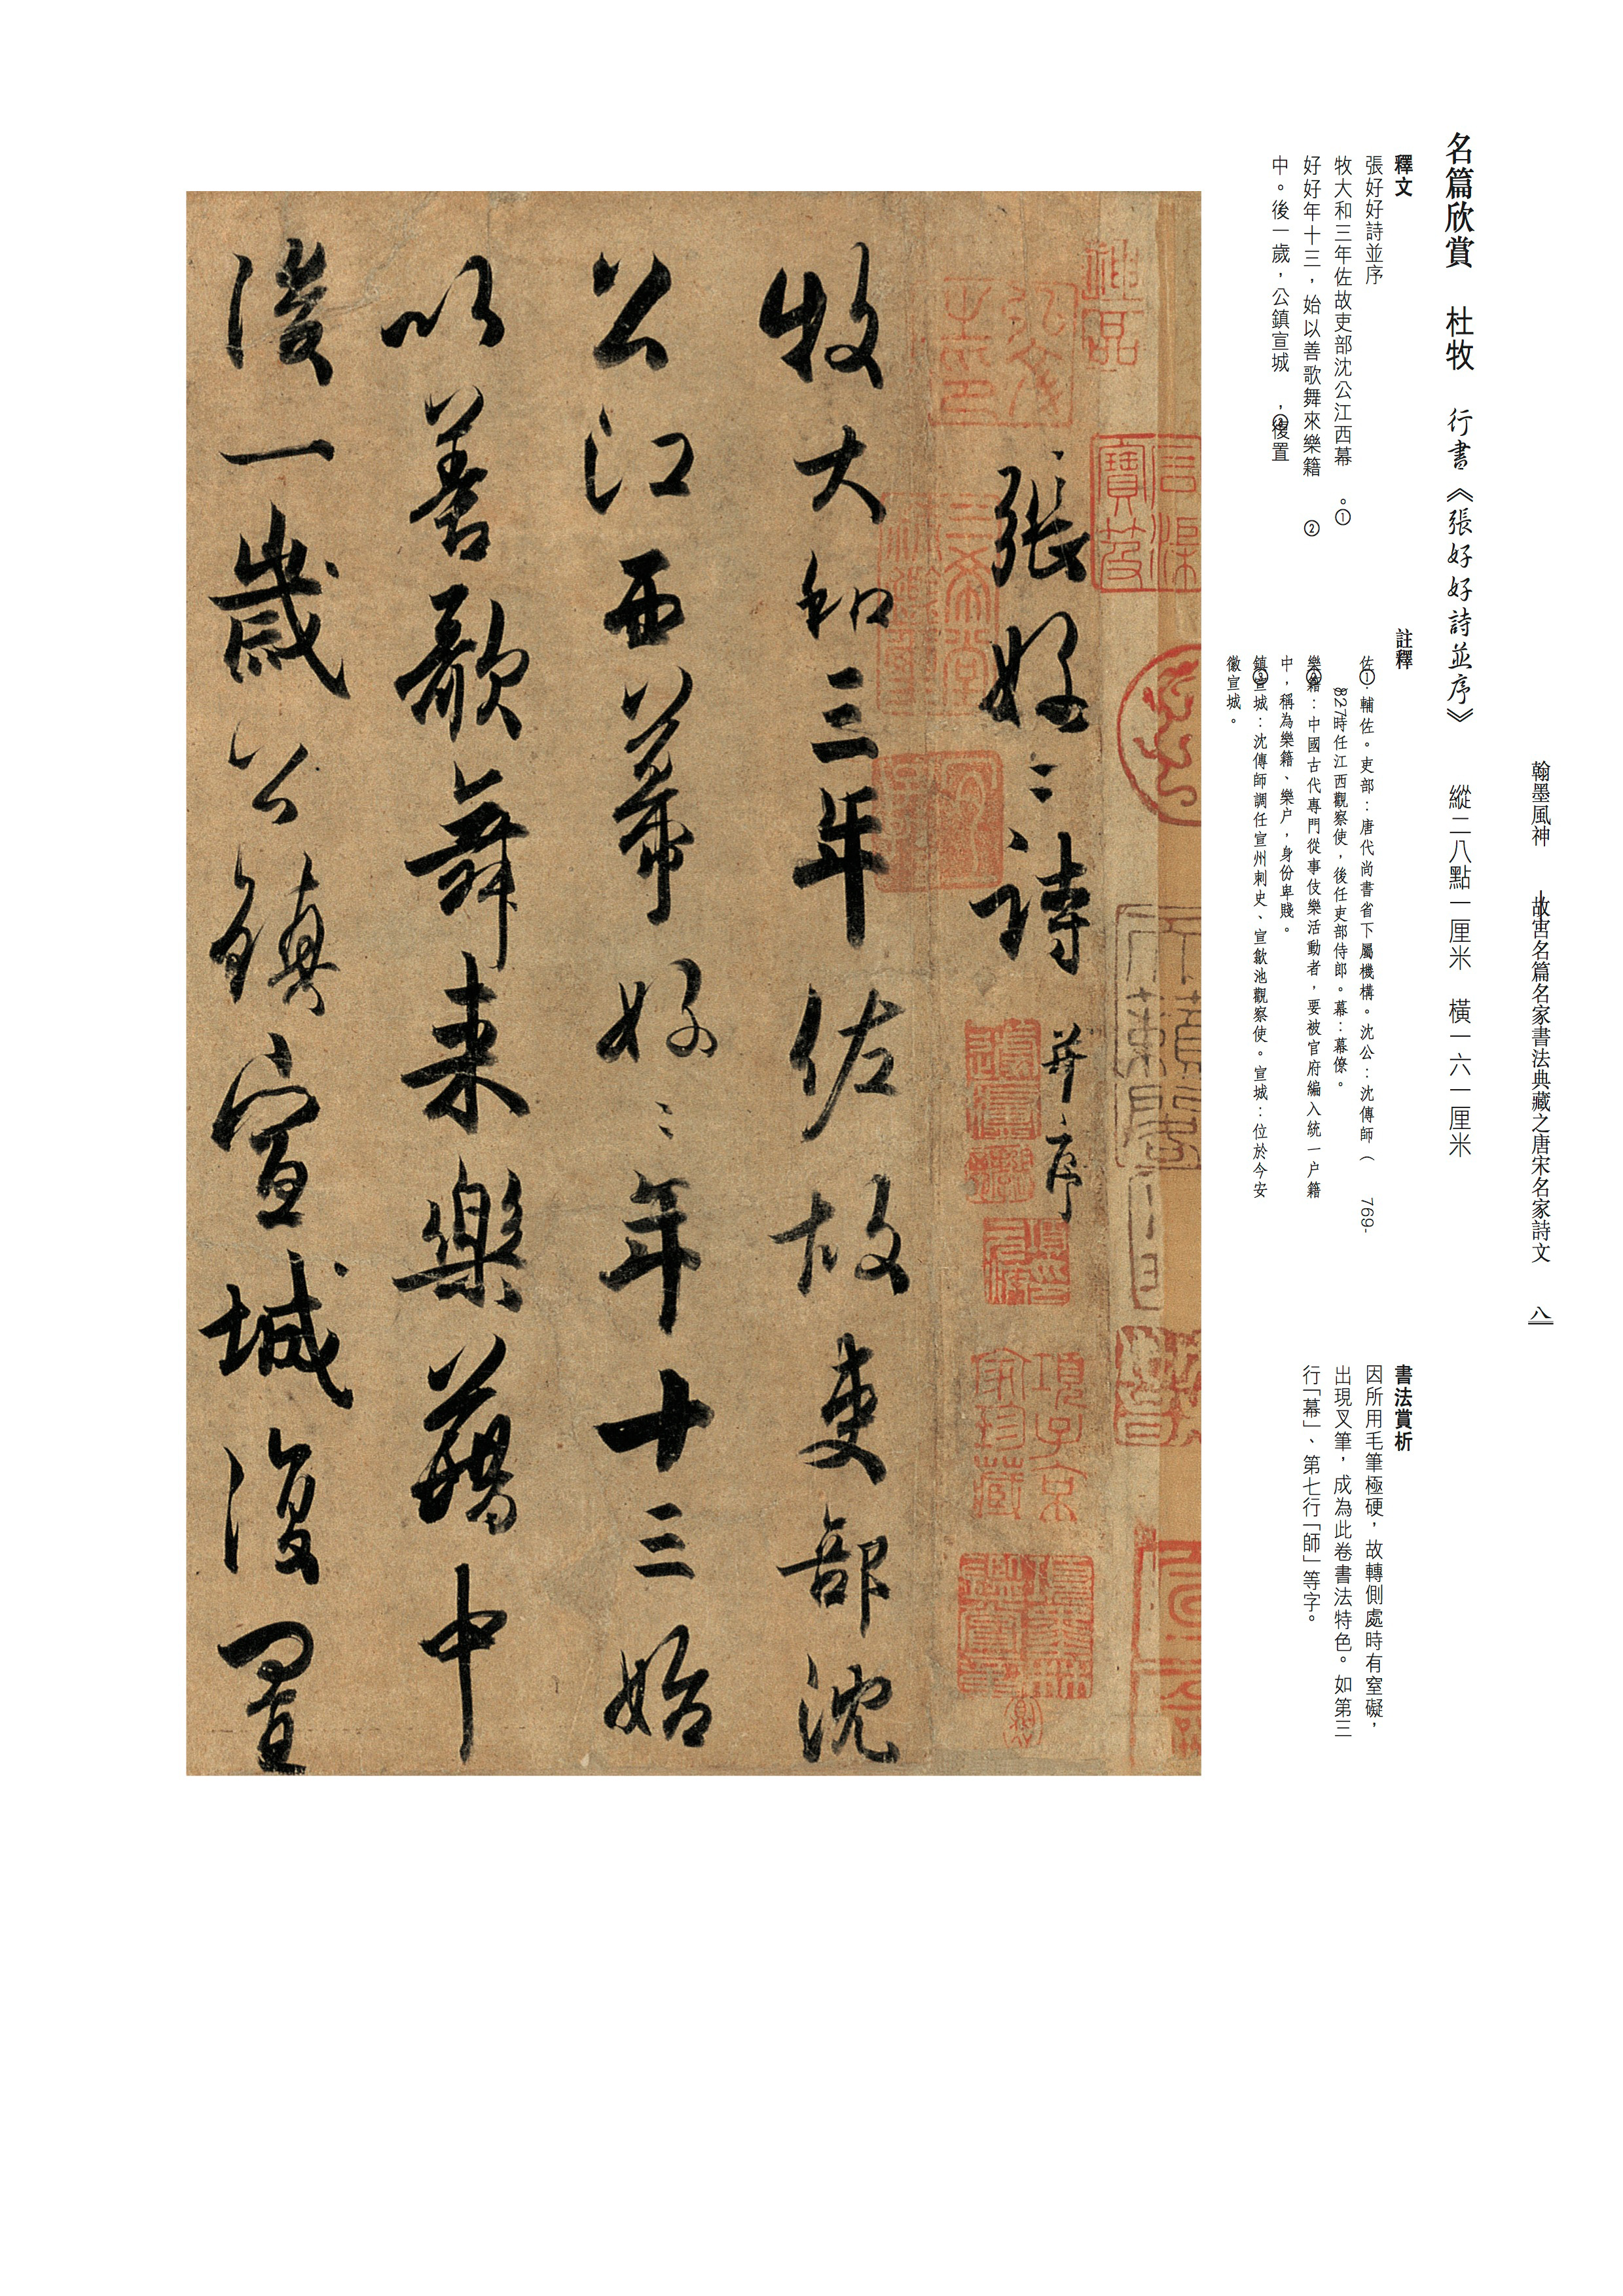 翰墨風神 故宮名篇名家書法典藏之唐宋名家詩文
八
名篇欣賞 杜牧 行書《張好好詩並序》 縱二八點一厘米 橫一六一厘米
釋文
張好好詩並序
牧大和三年佐故吏部沈公江西幕①。
好好年十三，始以善歌舞來樂籍②
中。後一歲，公鎮宣城③，後置
註釋
①佐：輔佐。吏部：唐代尚書省下屬機構。沈公：沈傳師（769-
827）時任江西觀察使，後任吏部侍郎。幕：幕僚。
②樂籍：中國古代專門從事伎樂活動者，要被官府編入統一户籍
中，稱為樂籍、樂户，身份卑賤。
③鎮宣城：沈傳師調任宣州刺史、宣歙池觀察使。宣城：位於今安
徽宣城。
書法賞析
因所用毛筆極硬，故轉側處時有窒礙，
出現叉筆，成為此卷書法特色。如第三
行「幕」、第七行「師」等字。
張好〻詩并序
牧大和三年佐故吏部沈
公江西幕好〻年十三始
以善歌舞來樂藉中
後一歲公鎮宣城復置
三希堂
項子京家珍藏